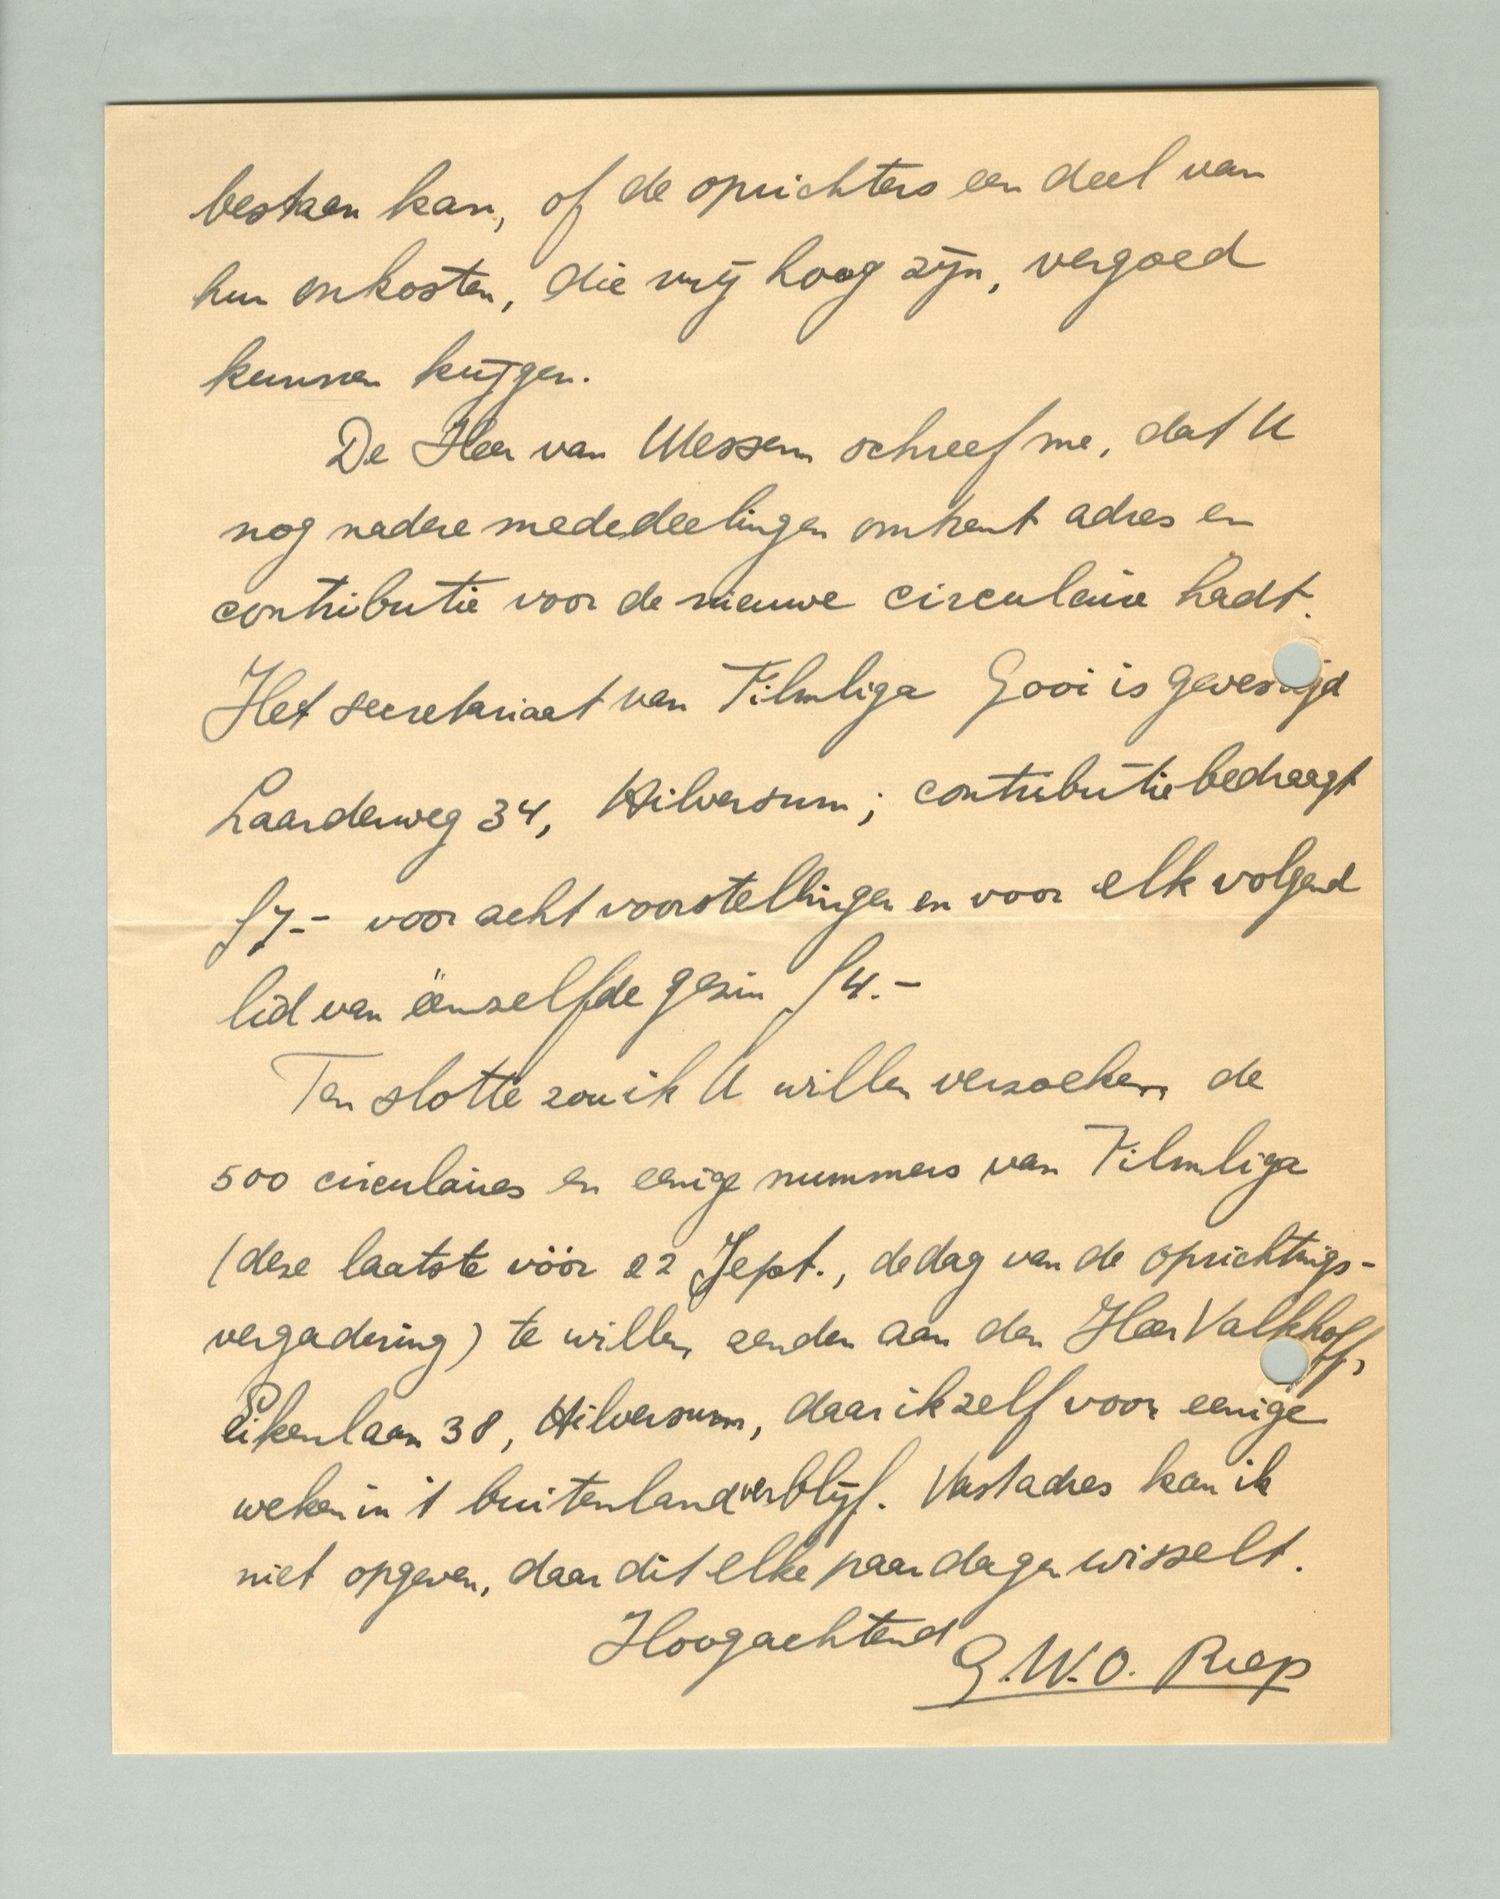 bestaan kan, of de oprichters een deel van
hun onkosten, die vrij hoog zijn, vergoed
kunnen krijgen.
De Heer van Wessem schreef me, dat U
nog nadere mededeelingen omtrent adres en
contributie voor de nieuwe circulaire hadt.
Het secretariaat van Filmliga Gooi is gevestigd
Laarderweg 34, Hilversum; contributie bedraagt
f 7.- voor acht voorstellingen en voor elk volgend
lid van éénzelfde gezin f 4.-
Ten slotte zou ik U willen verzoeken de
500 circulaires en eenige nummers van Filmliga
(deze laatste vóór 22 Sept., de dag van de oprichtings-
vergadering) te willen zenden aan den Heer Valkhoff,
Eikenlaan 38, Hilversum, daar ik zelf voor eenige
weken in 't buitenland verblijf. Vast adres kan ik
niet opgeven, daar dit elke paar dagen wisselt.
Hoogachtend
G.W.O. Riep